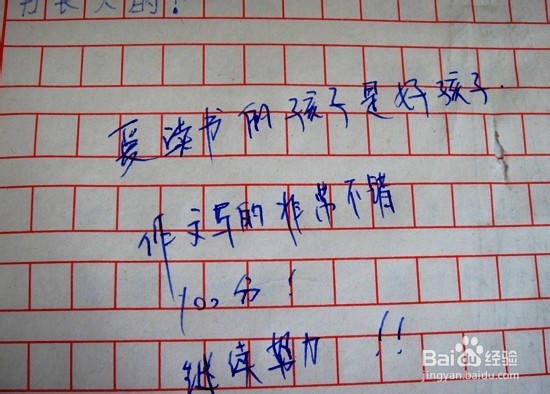 爱读书的孩子是好孩子.
作文写的非常不错
100分!
继续努力!!
Baidu经验
jingyan.baidu.com